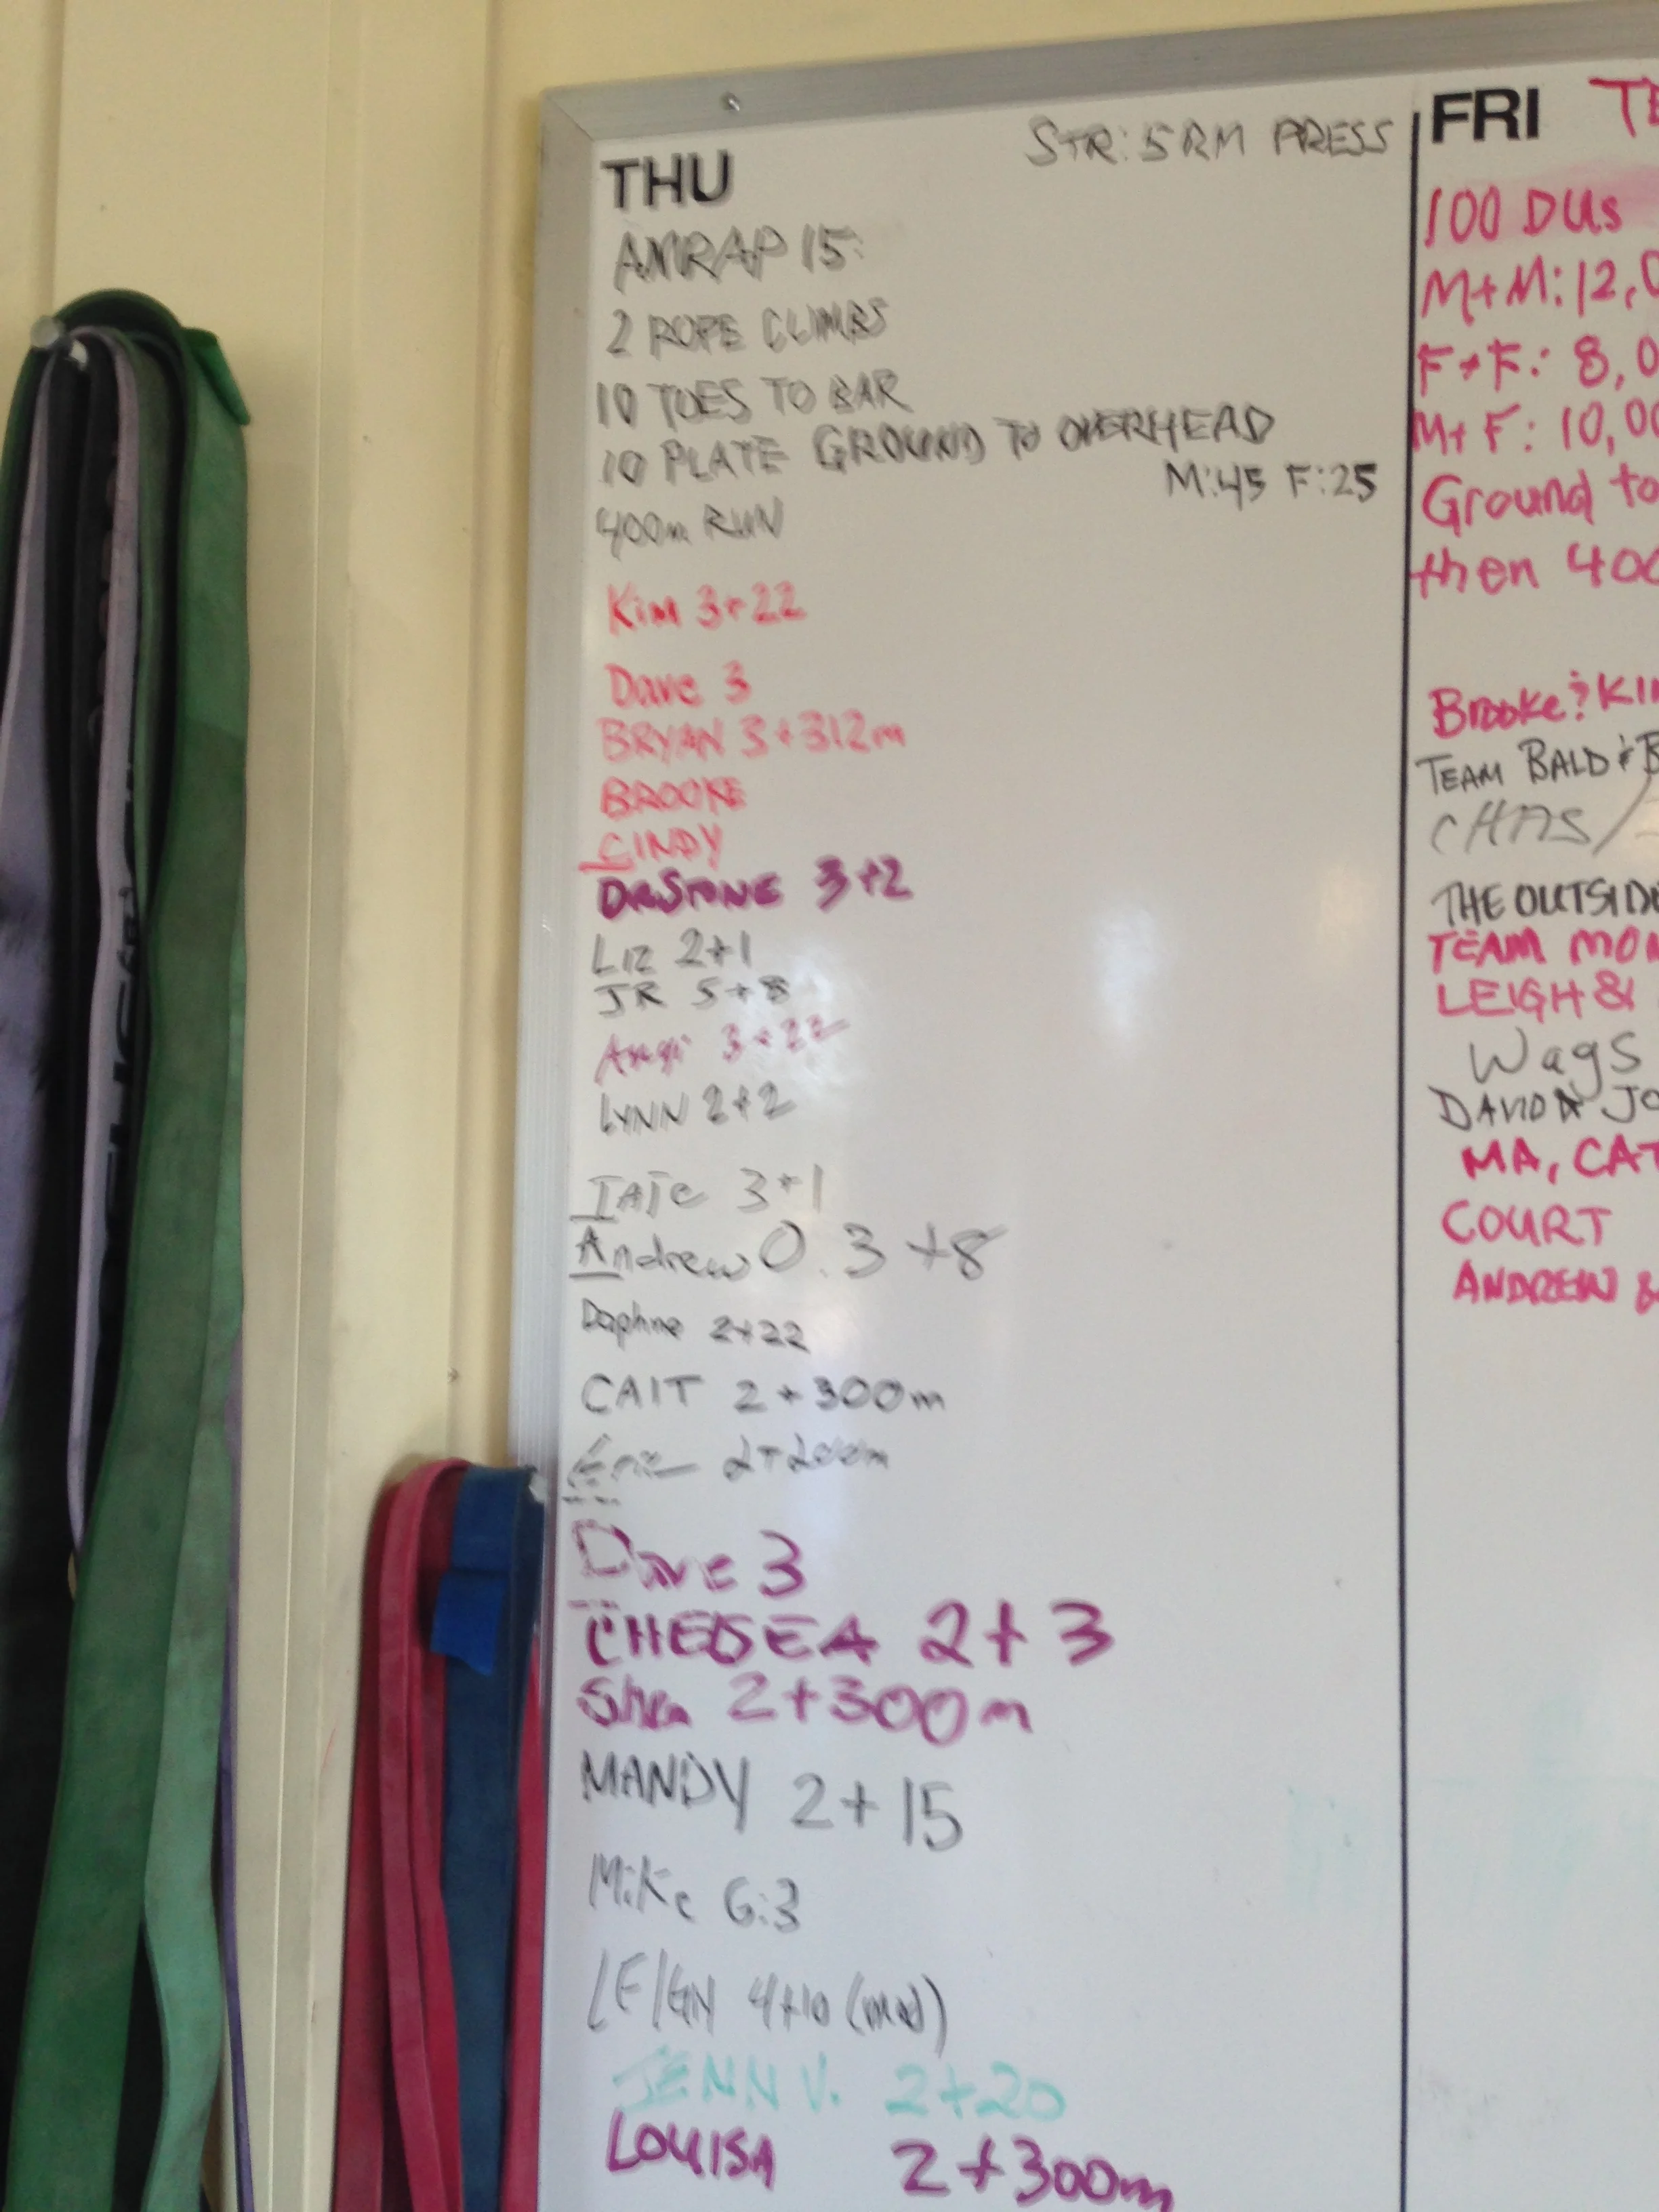 THU
STR: 5 RM PRESS
AMRAP 15:
2 ROPE CLIMBS
10 TOES TO BAR
10 PLATE GROUND TO OVERHEAD
M:45 F:25
400m RUN
Kim 3+22
Dave 3
BRYAN 3+312m
BROOKE
CINDY
DR STONE 3+2
LIZ 2+1
JR 5+8
Angi 3+22
LYNN 2+2
TATE 3+1
Andrew O. 3+8
Daphne 2+22
CAIT 2+300m
2+200m
Dave 3
CHELSEA 2+3
Shea 2+300m
MANDY 2+15
Mike G:3
LEIGH 4+10
JENN V. 2+20
LOUISA 2+300m
FRI
100 DUs
M+M: 12,0
F+F: 8,0
M+F: 10,00
Ground to
then 400
Brooke & Kim
TEAM BALD & B
CHAS /
THE OUTSIDE
TEAM MON
LEIGH &
Wags
DAVID & JO
MA, CAT
COURT
ANDREW &